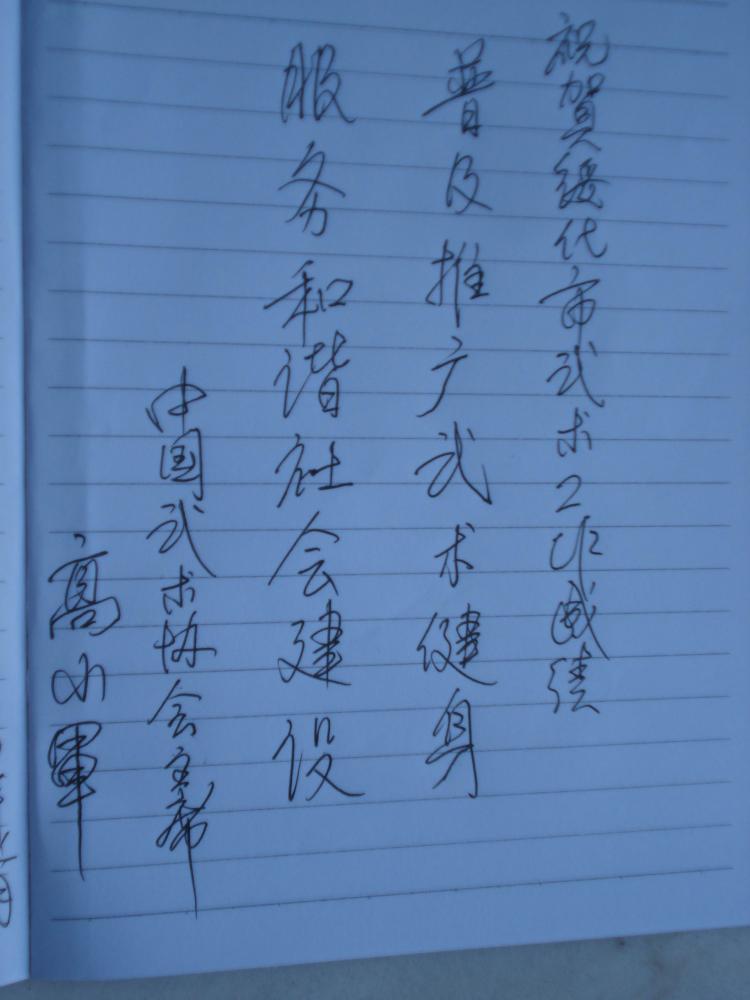 祝賀绥化市武术工作成绩
普及推广武术健身
服务和谐社会建设
中国武术协会主席
高小軍